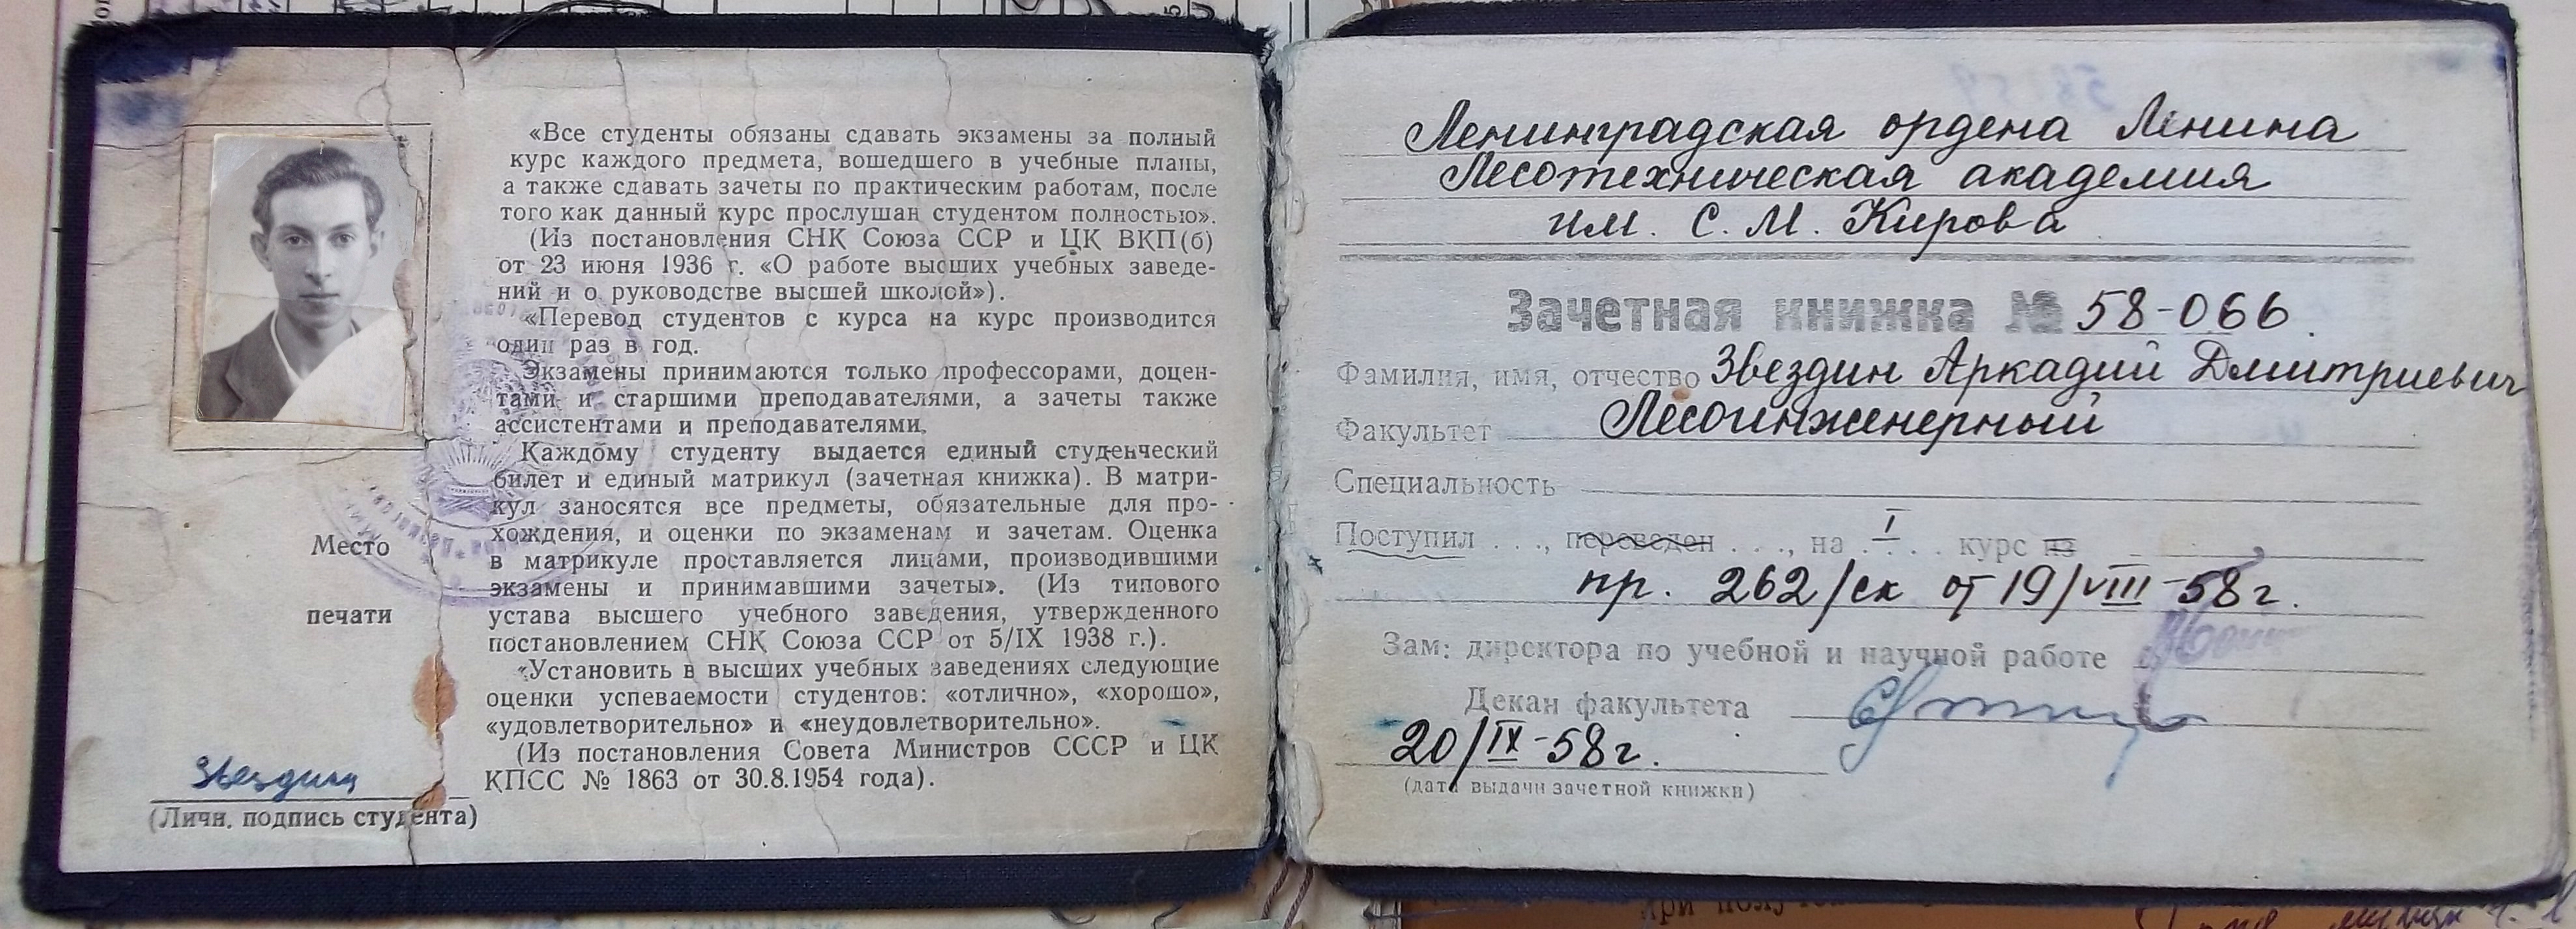 «Все студенты обязаны сдавать экзамены за полный
курс каждого предмета, вошедшего в учебные планы,
а также сдавать зачеты по практическим работам, после
того как данный курс прослушан студентом полностью».
(Из постановления СНК Союза ССР и ЦК ВКП(б)
от 23 июня 1936 г. «О работе высших учебных заведе-
ний и о руководстве высшей школой»).
«Перевод студентов с курса на курс производится
один раз в год.
Экзамены принимаются только профессорами, доцен-
тами и старшими преподавателями, а зачеты также
ассистентами и преподавателями.
Каждому студенту выдается единый студенческий
билет и единый матрикул (зачетная книжка). В матри-
кул заносятся все предметы, обязательные для про-
хождения, и оценки по экзаменам и зачетам. Оценка
в матрикуле проставляется лицами, производившими
экзамены и принимавшими зачеты». (Из типового
устава высшего учебного заведения, утвержденного
постановлением СНК Союза ССР от 5/IX 1938 г.).
«Установить в высших учебных заведениях следующие
оценки успеваемости студентов: «отлично», «хорошо»,
«удовлетворительно» и «неудовлетворительно».
(Из постановления Совета Министров СССР и ЦК
КПСС № 1863 от 30.8.1954 года).
Место
печати
Звездин
(Личн. подпись студента)
Ленинградская ордена Ленина
Лесотехническая академия
им. С. М. Кирова
Зачетная книжка № 58-066.
Фамилия, имя, отчество Звездин Аркадий Дмитриевич
Факультет Лесоинженерный
Специальность
Поступил . . ., переведен . . ., на . I . . курс из
пр. 262/ск от 19/VIII-58г.
Зам: директора по учебной и научной работе
Декан факультета
20/IX-58г.
(дата выдачи зачетной книжки)